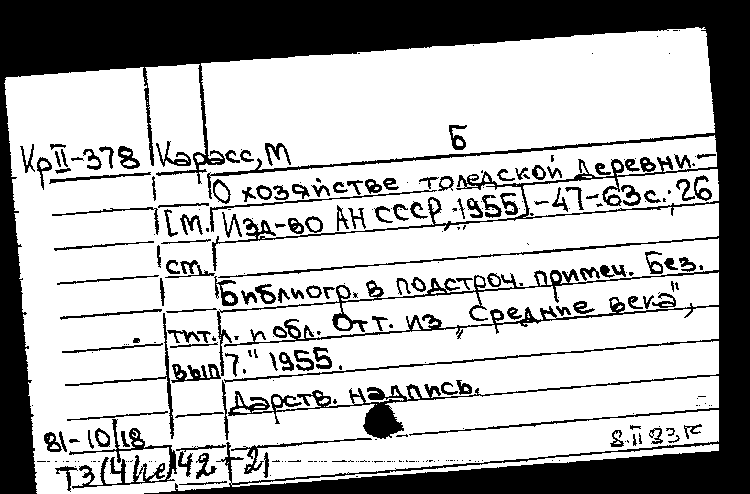 Б
КрII-378 Карасс, М
О хозяйстве толедской деревни.-
[М., Изд-во АН СССР, 1955].-47-63с.; 26
см.
Библиогр. в подстроч. примеч. Без.
тит. л. и обл. Отт. из „Средние века",
вып 7." 1955.
Дарств. надпись.
81-10/18
8.II 83
Т3(4Ис)42 + 21